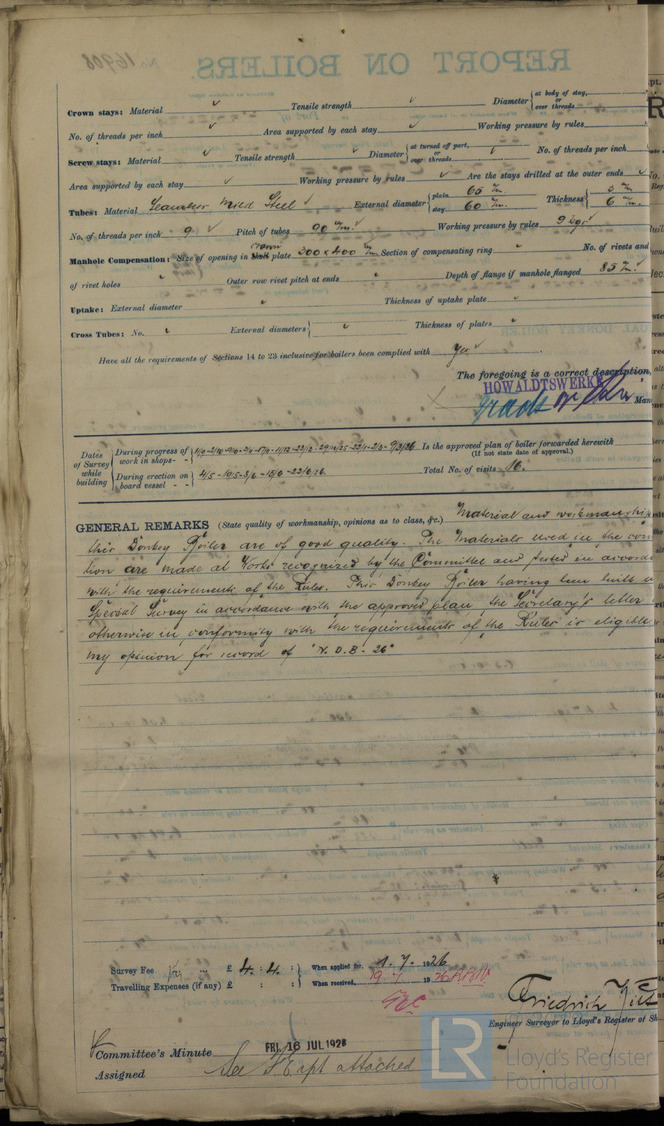 REPORT ON BOILERS.
No. 16908
Crown stays: Material ✓ Tensile strength ✓ Diameter { at body of stay, or over threads
No. of threads per inch ✓ Area supported by each stay ✓ Working pressure by rules
Screw stays: Material ✓ Tensile strength ✓ Diameter { at turned off part, or over threads ✓ No. of threads per inch
Area supported by each stay ✓ Working pressure by rules ✓ Are the stays drilled at the outer ends ✓
Tubes: Material Seamless Mild Steel ✓ External diameter { plain 65 m/m stay 60 m/m Thickness { 6 m/m
No. of threads per inch 9 ✓ Pitch of tubes 90 m/m ✓ Working pressure by rules 9 kgs ✓
Manhole Compensation: Size of opening in plate 300 x 400 m/m Section of compensating ring No. of rivets and
of rivet holes Outer row rivet pitch at ends Depth of flange if manhole flanged 85 m/m ✓
Uptake: External diameter Thickness of uptake plate
Cross Tubes: No. External diameters { Thickness of plates
Have all the requirements of Sections 14 to 23 inclusive for boilers been complied with Yes ✓
The foregoing is a correct description,
HOWALDTSWERKE
Man
Dates of Survey while building
During progress of work in shops - - Is the approved plan of boiler forwarded herewith
(If not state date of approval.)
During erection on board vessel - - Total No. of visits 16.
GENERAL REMARKS (State quality of workmanship, opinions as to class, &c.) Material and workmanship
this Donkey Boiler are of good quality. The Materials used in the con
tion are made at Works recognized by the Committee and tested in accord
with the requirements of the Rules. This Donkey Boiler having been built
Special Survey in accordance with the approved plan, the Secretary's letter
otherwise in conformity with the requirements of the Rules is eligible
my opinion for record of "N.D.B. 26"
Survey Fee £ 4 : 4 : } When applied for, 1.7. 1926
Travelling Expenses (if any) £ : : When received, 19.7. 1926
Friedrich
Engineer Surveyor to Lloyd's Register of Sh
Committee's Minute FRI. 16 JUL 1926
Assigned See F.E. Rpt attached
LR
Lloyd's Register
Foundation